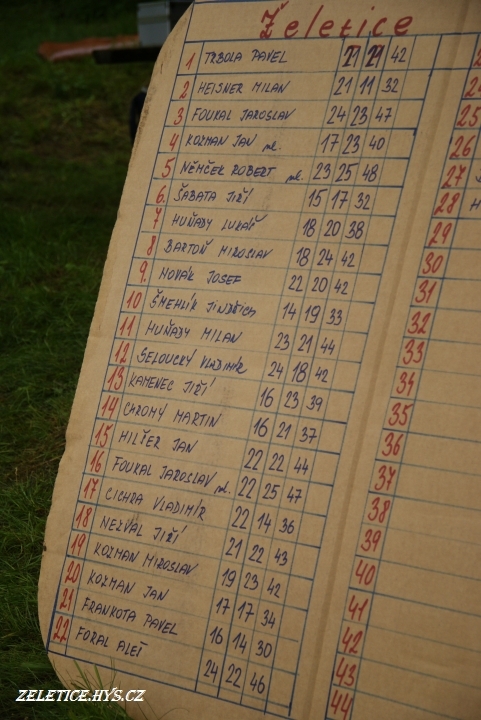 Želetice
1. TRBOLA PAVEL 21 21 42
2 HEISNER MILAN 21 11 32
3 FOUKAL JAROSLAV 24 23 47
4 KOZMAN JAN ml. 17 23 40
5 NĚMČEK ROBERT ml. 23 25 48
6. ŠABATA JIŘÍ 15 17 32
7 HUŇADY LUKÁŠ 18 20 38
8 BARTOŇ MIROSLAV 18 24 42
9. NOVÁK JOSEF 22 20 42
10 ŠMEHLÍK JINDŘICH 14 19 33
11 HUŇADY MILAN 23 21 44
12 SELOUCKÝ VLADIMÍR 24 18 42
13 KAMENEC JIŘÍ 16 23 39
14 CHROMÝ MARTIN 16 21 37
15 HILŤER JAN 22 22 44
16 FOUKAL JAROSLAV ml. 22 25 47
17 CICHRA VLADIMÍR 22 14 36
18 NEZVAL JIŘÍ 21 22 43
19 KOZMAN MIROSLAV 19 23 42
20 KOZMAN JAN 17 17 34
21 FRANKOTA PAVEL 16 14 30
22 FORAL ALEŠ 24 22 46
25
26
27
28
29
30
31
32
33
34
35
36
37
38
39
40
41
42
43
44
ZELETICE.HYS.CZ